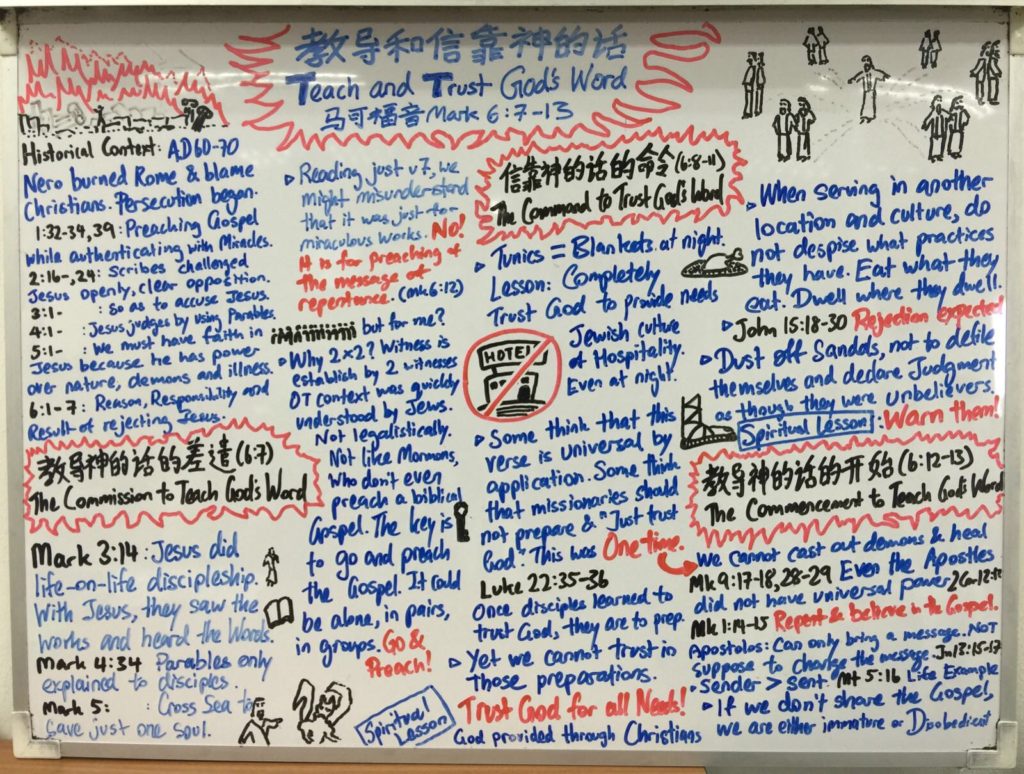 教导和信靠神的话
Teach and Trust God's Word
马可福音 Mark 6:7-13
Historical Context: AD60-70
Nero burned Rome & blame
Christians. Persecution began.
1:32-34,39: Preaching Gospel
while authenticating with Miracles.
2:16-,24: Scribes challenged
Jesus openly, clear opposition.
3:1- : So as to accuse Jesus.
4:1- : Jesus judges by using Parables.
5:1- : We must have faith in
Jesus because he has power
over nature, demons and illness.
6:1-7: Reason, Responsibility and
Result of rejecting Jesus.
教导神的话的差遣(6:7)
The Commission to Teach God's Word
Mark 3:14: Jesus did
life-on-life discipleship.
With Jesus, they saw the
works and heard the Words.
Mark 4:34 Parables only
explained to disciples.
Mark 5: : Cross Sea to
save just one soul.
Reading just v7, we
might misunderstand
that it was just for
miraculous works. No!
It is for preaching of
the message of
repentance. (mk 6:12)
but for me?
Why 2x2? Witness is
establish by 2 witnesses
OT context was quickly
understood by Jews.
Not legalistically.
Not like Mormons,
who don't even
preach a biblical
Gospel. The key is
to go and preach
the Gospel. It could
be alone, in pairs,
in groups. Go &
Preach!
Spiritual
Lesson
信靠神的话的命令(6:8-11)
The Command to Trust God's Word
Tunics = Blankets at night.
Lesson: Completely
Trust God to provide needs
HOTEL
Jewish culture
of Hospitality.
Even at night.
Some think that this
verse is universal by
application. Some think
that missionaries should
not prepare & "Just trust
God". This was One-time.
Luke 22:35-36
Once disciples learned to
trust God, they are to prep.
Yet we cannot trust in
those preparations.
Trust God for all Needs!
God provided through Christians
When serving in another
location and culture, do
not despise what practices
they have. Eat what they
eat. Dwell where they dwell.
John 15:18-30 Rejection expected
Dust off Sandals, not to defile
themselves and declare Judgment
as though they were unbelievers.
Spiritual Lesson: Warn them!
教导神的话的开始(6:12-13)
The Commencement to Teach God's Word
We cannot cast out demons & heal
Mk 9:17-18,28-29 Even the Apostles
did not have universal power
Mk 1:14-15 Repent & believe in the Gospel.
Apostolos: Can only bring a message. NOT
suppose to change the message. Jn 13:15-17
Sender > sent. Mt 5:16 Life Example
If we don't share the Gospel,
we are either immature or Disobedient